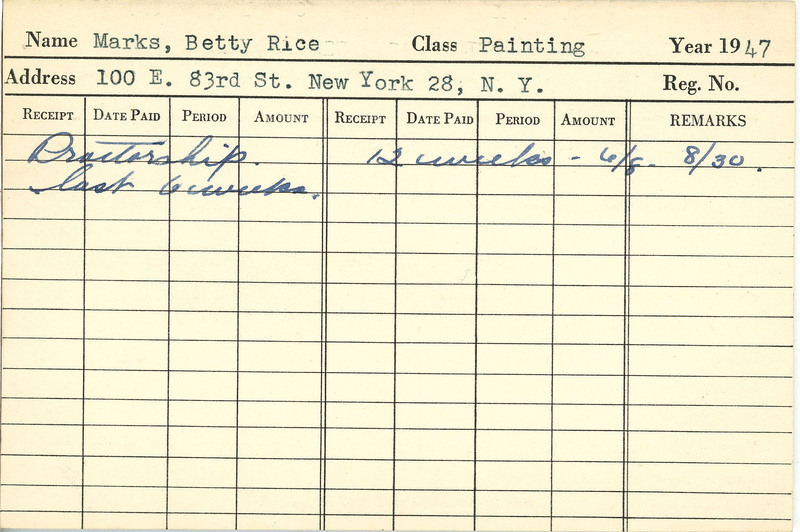 Name Marks, Betty Rice Class Painting Year 1947
Address 100 E. 83rd St. New York 28, N. Y. Reg. No.
RECEIPT DATE PAID PERIOD AMOUNT RECEIPT DATE PAID PERIOD AMOUNT REMARKS
Proctorship. 12 weeks - 6/8 - 8/30.
last 6 weeks.